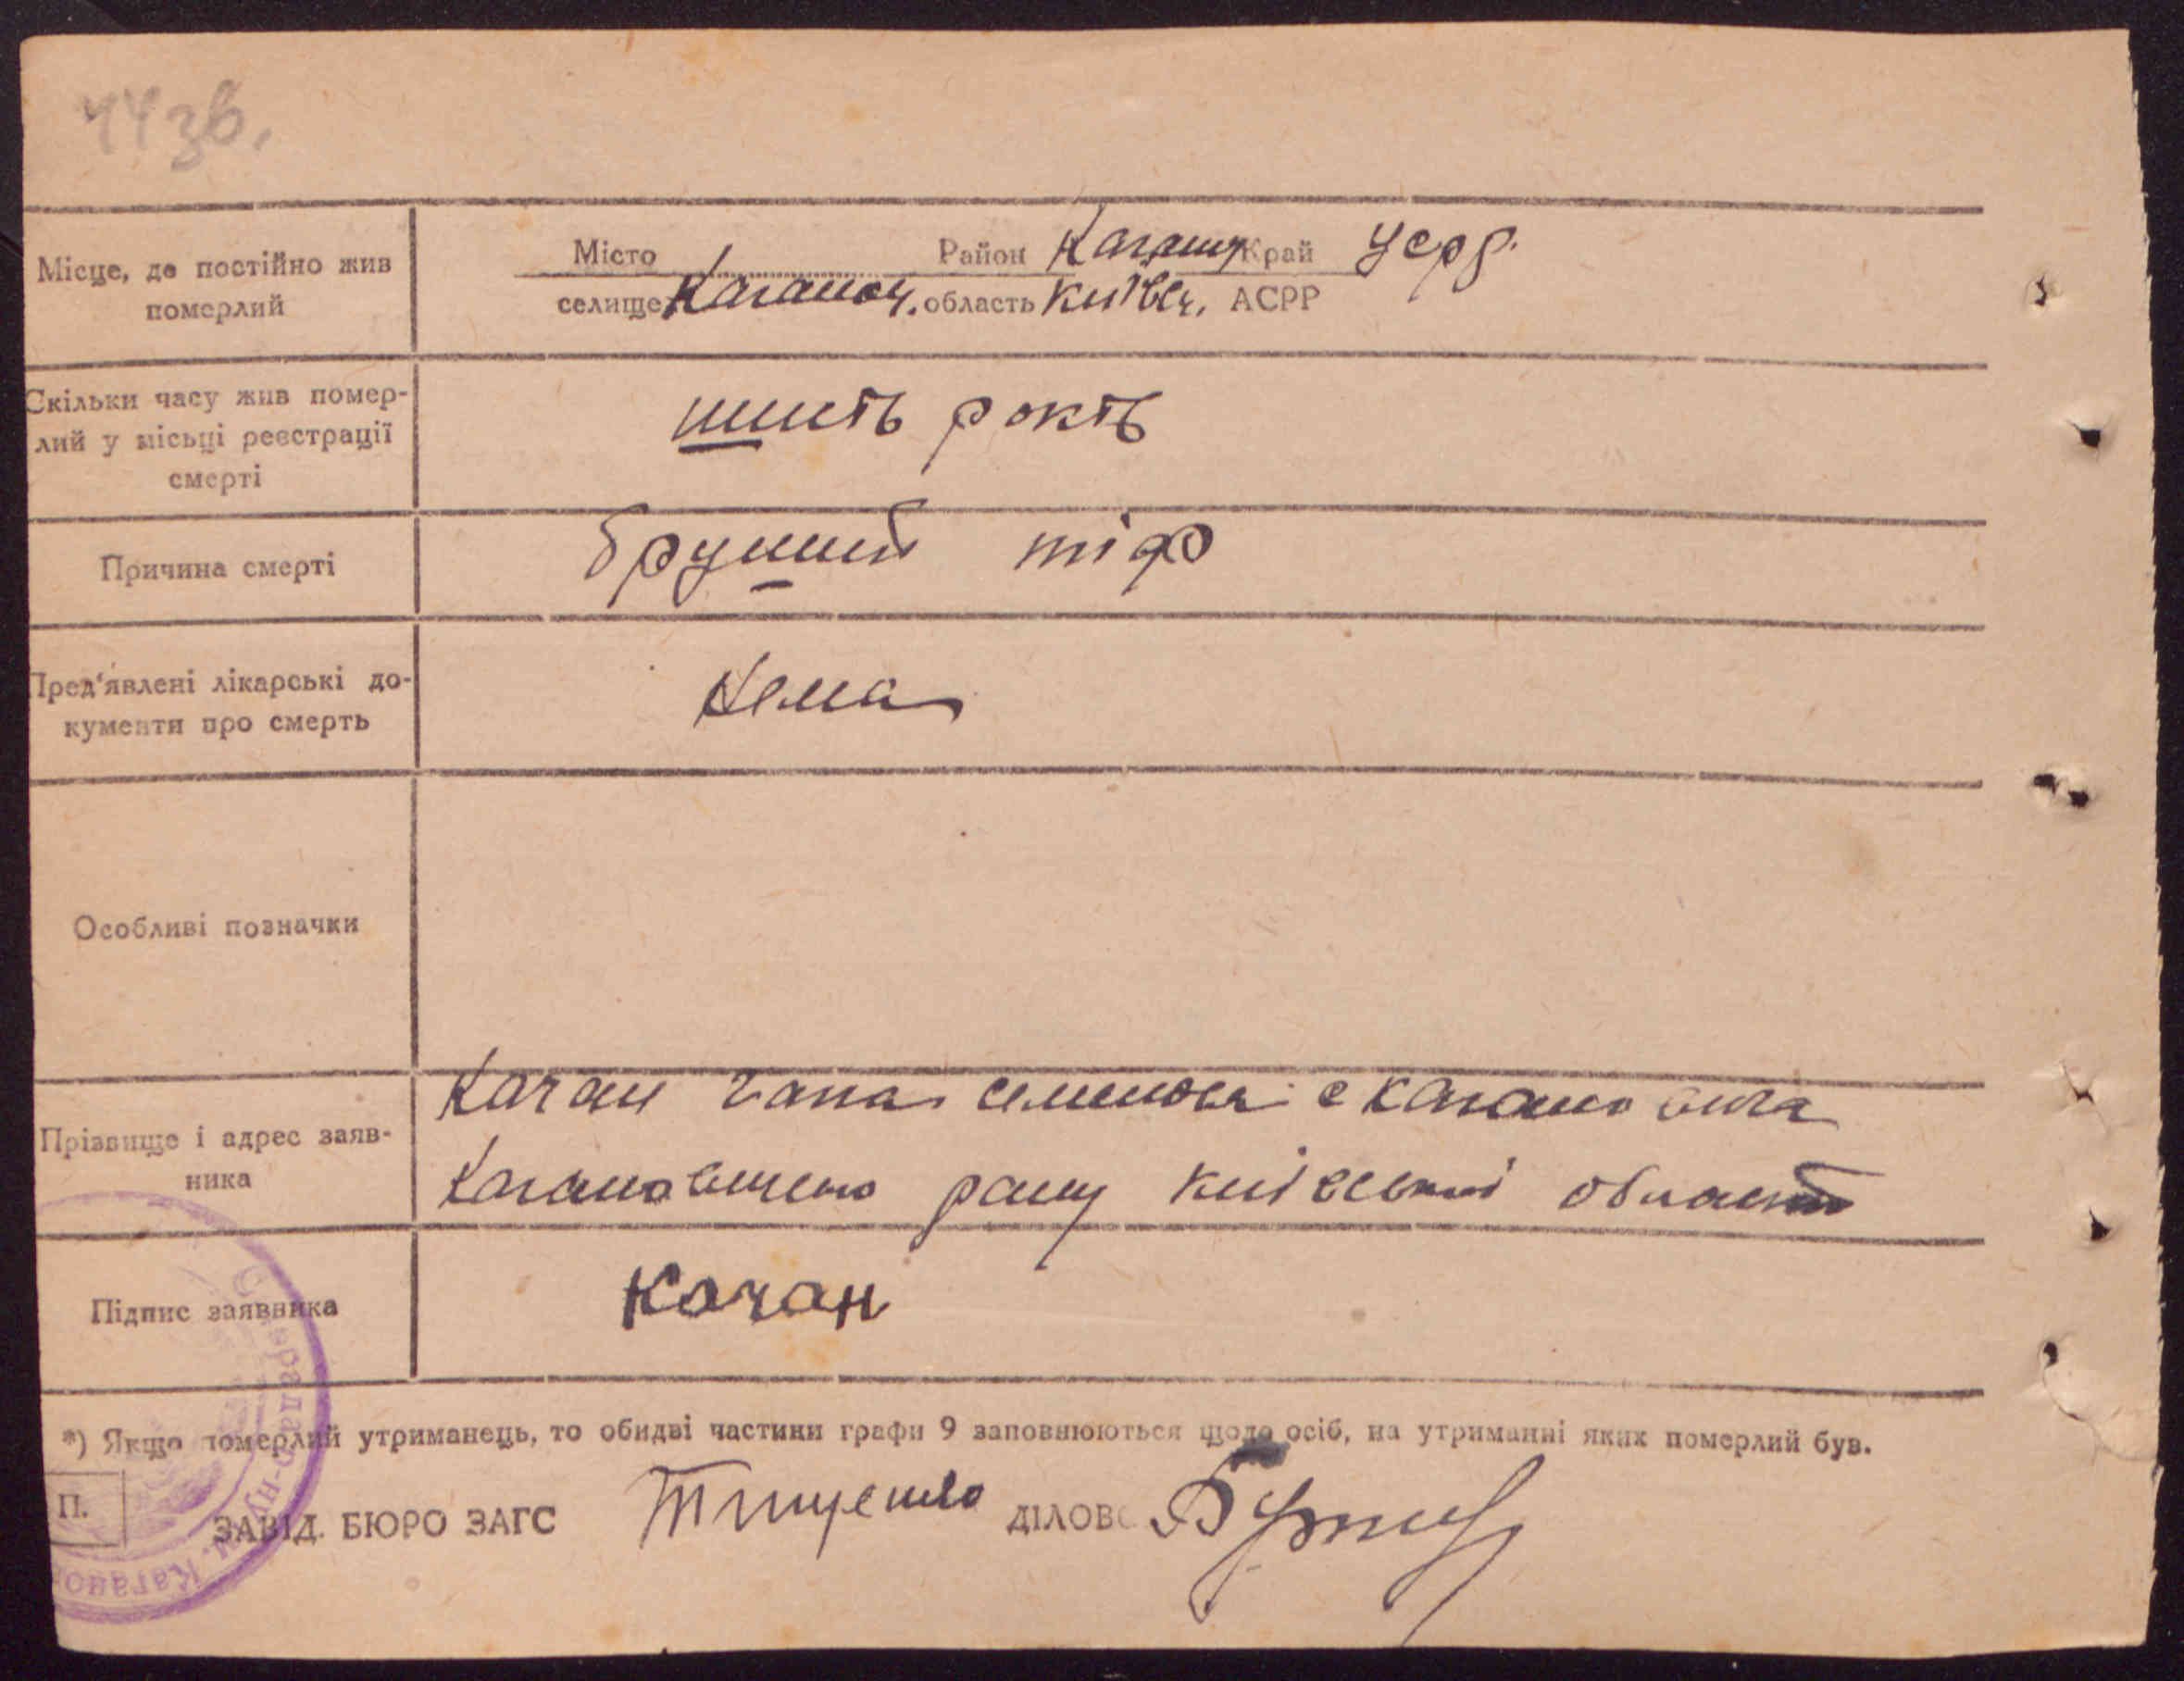 44зв.
Місце, де постійно жив
померлий
Місто Район Край Усрр.
селище область Київськ. АСРР
Скільки часу жив помер-
лий у місьці реєстрації
смерті
шість років
Причина смерті
брушний тіф
Пред'явлені лікарські до-
кументи про смерть
Нема
Особливі позначки
Прізвище і адрес заяв-
ника
Качан Гапа с Кагановича
Кагановицького райну Київської області
Підпис заявника
Качан
*) Якщо померлий утриманець, то обидві частини графи 9 заповнюються щодо осіб, на утриманні яких померлий був.
П.
ЗАВІД. БЮРО ЗАГС ДІЛОВ